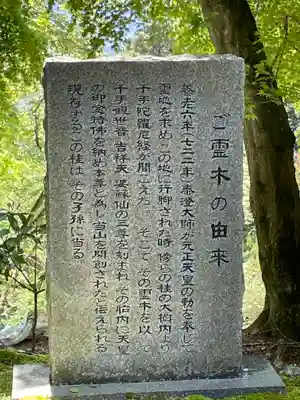 ご霊木の由来
養老六年(七二二年)泰澄大師が元正天皇の勅を奉じて
霊地を求めこの地に行脚された時 修しの桂の大樹内より
千手陀羅尼経が聞こえた。そこで その霊木を以て
千手観世音 吉祥天 婆蘇仙の三尊を刻まれ その胎内に天皇
の御念持佛を納め本尊と為し当山を開創されたと伝えられる
現存するこの桂は その子孫に当る。